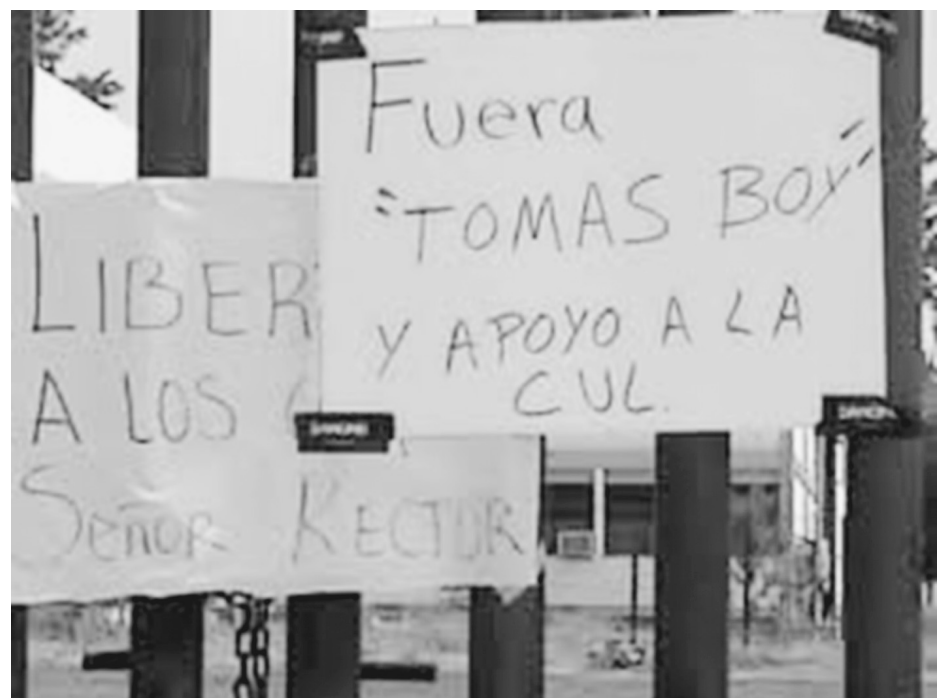 Fuera
"TOMAS BOY"
Y APOYO A LA
CUL.
LIBER
A LOS
Señor RECTOR